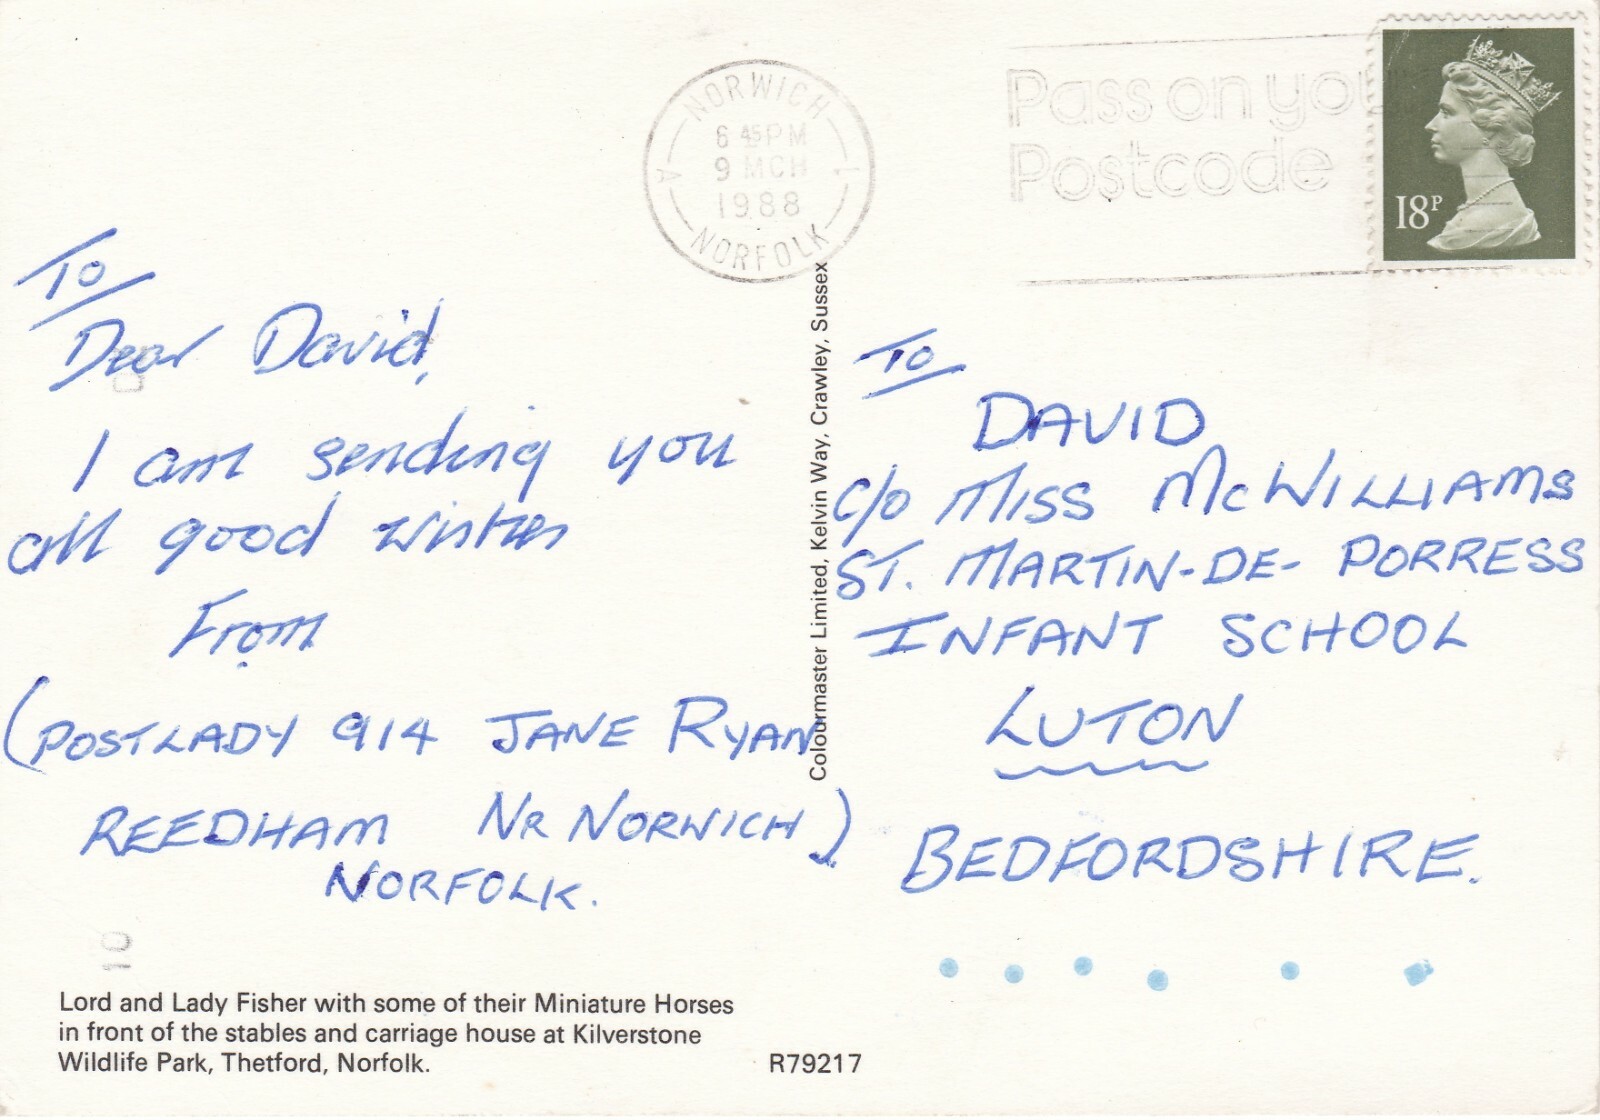 NORWICH
6 45 PM
9 MCH
1988
A 1
NORFOLK
Pass on you
Postcode
18P
To
Dear David,
I am sending you
all good wishes
From
(POSTLADY 914 JANE RYAN
REEDHAM NR NORWICH)
NORFOLK.
Colourmaster Limited, Kelvin Way, Crawley, Sussex
To
DAVID
c/o MISS McWILLIAMS
ST. MARTIN-DE- PORRESS
INFANT SCHOOL
LUTON
BEDFORDSHIRE.
10
Lord and Lady Fisher with some of their Miniature Horses
in front of the stables and carriage house at Kilverstone
Wildlife Park, Thetford, Norfolk.
R79217